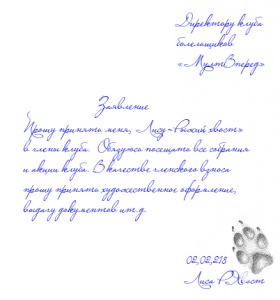 Директору клуба
болельщиков
«МультВперед»
Заявление
Прошу принять меня, «Лису-Рыжий хвост»
в члены клуба. Обязуюсь посещать все собрания
и акции клуба. В качестве членского взноса
прошу принять художественное оформление,
выдачу документов и т.д.
02.02.218
Лиса Р.Хвост